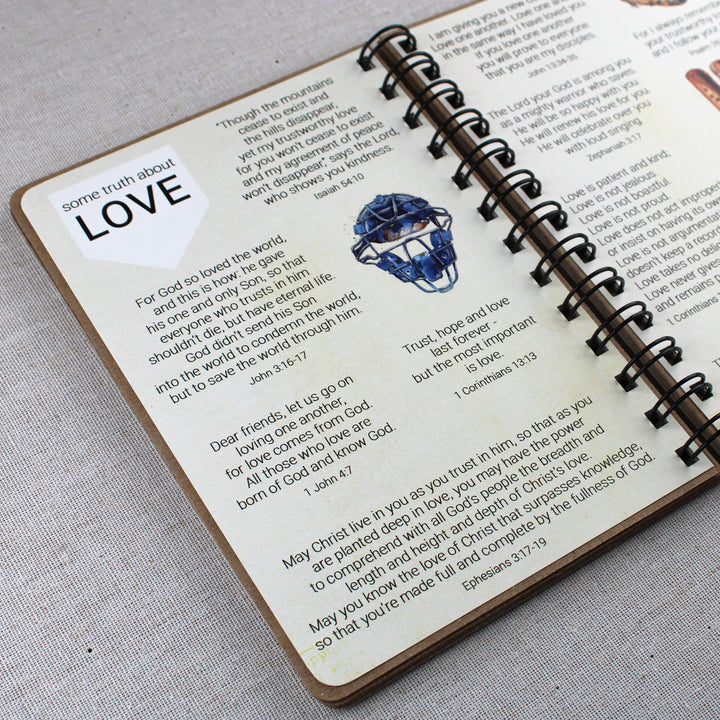 some truth about
LOVE
"Though the mountains
cease to exist and
the hills disappear,
yet my trustworthy love
for you won't cease to exist
and my agreement of peace
won't disappear," says the Lord,
who shows you kindness.
Isaiah 54:10
For God so loved the world,
and this is how: he gave
his one and only Son, so that
everyone who trusts in him
shouldn't die, but have eternal life.
God didn't send his Son
into the world to condemn the world,
but to save the world through him.
John 3:16-17
Trust, hope and love
last forever -
but the most important
is love.
1 Corinthians 13:13
Dear friends, let us go on
loving one another,
for love comes from God.
All those who love are
born of God and know God.
1 John 4:7
May Christ live in you as you trust in him, so that as you
are planted deep in love, you may have the power
to comprehend with all God's people the breadth and
length and height and depth of Christ's love.
May you know the love of Christ that surpasses knowledge,
so that you're made full and complete by the fullness of God.
Ephesians 3:17-19
I am giving you a new
Love one another. Love one
in the same way I have loved
If you love one another
you will prove to everyone
that you are my disciples
John 13:34-35
The Lord your God is among you
as a mighty warrior who saves.
He will be so happy with you.
He will renew his love for you
He will celebrate over you
with loud singing.
Zephaniah 3:17
Love is patient and kind,
Love is not jealous.
Love is not boastful.
Love is not proud.
Love does not act improper
or insist on having its ow
Love is not argumentat
doesn't keep a recor
Love takes no deli
Love never gives
and remains
1 Corinthians
For I always remem
your trustworthy
and I follow you